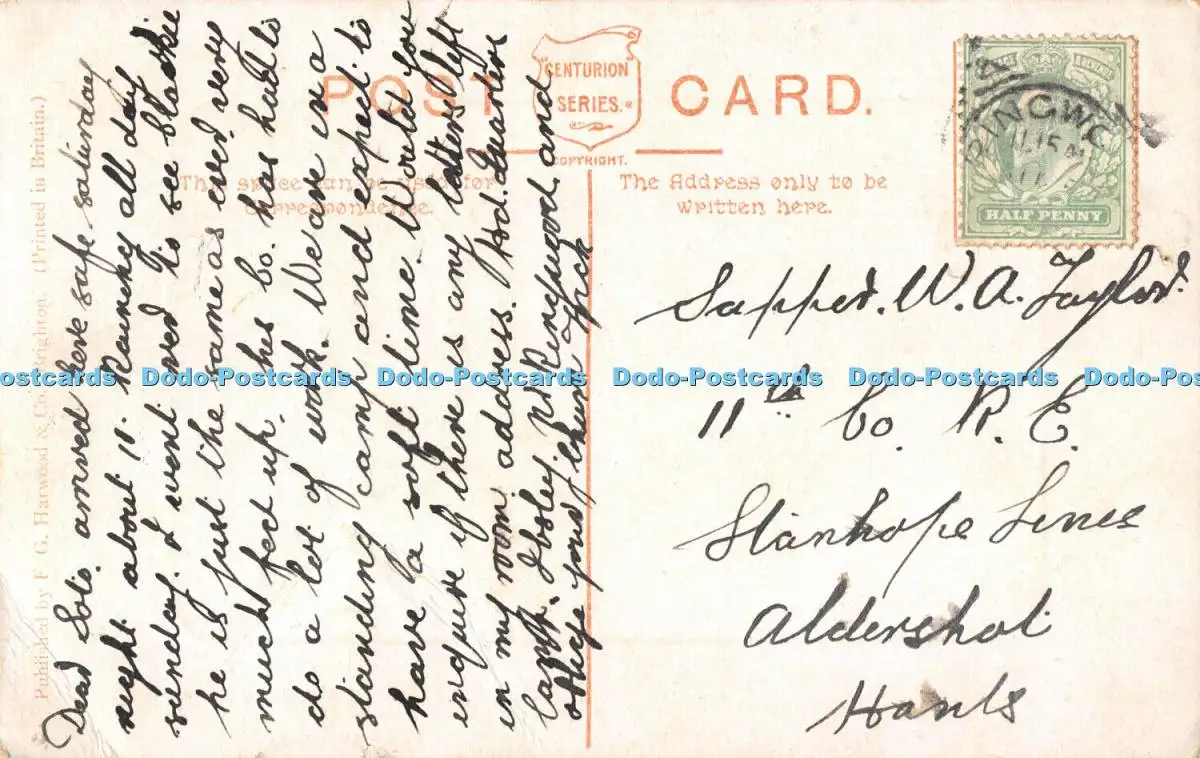 Published by F. G. Harwood & Co. Brighton. (Printed in Britain.)
POST CARD.
"CENTURION"
SERIES.
COPYRIGHT.
This space can be used for
Correspondence.
The Address only to be
written here.
HALF PENNY
RINGWO
11.15 AM
Dear arrived here safe saturday
night about 10. Raining all day
sunday. I went over to see blackie
he is just the same as ever very
much fed up. this Co. has had to
do a lot of work. We are in a
standing camp and expect to
have a soft time. Would you
enquire if there is any letters left
in my room. address. Hd. Quarters
Camp. Ibsley. Nr Ringwood. and
oblige your chum
Sapper. W. A. Taylor.
11th Co. R. E.
Stanhope Lines
Aldershot
Hants
Dodo-Postcards Dodo-Postcards Dodo-Postcards Dodo-Postcards Dodo-Postcards